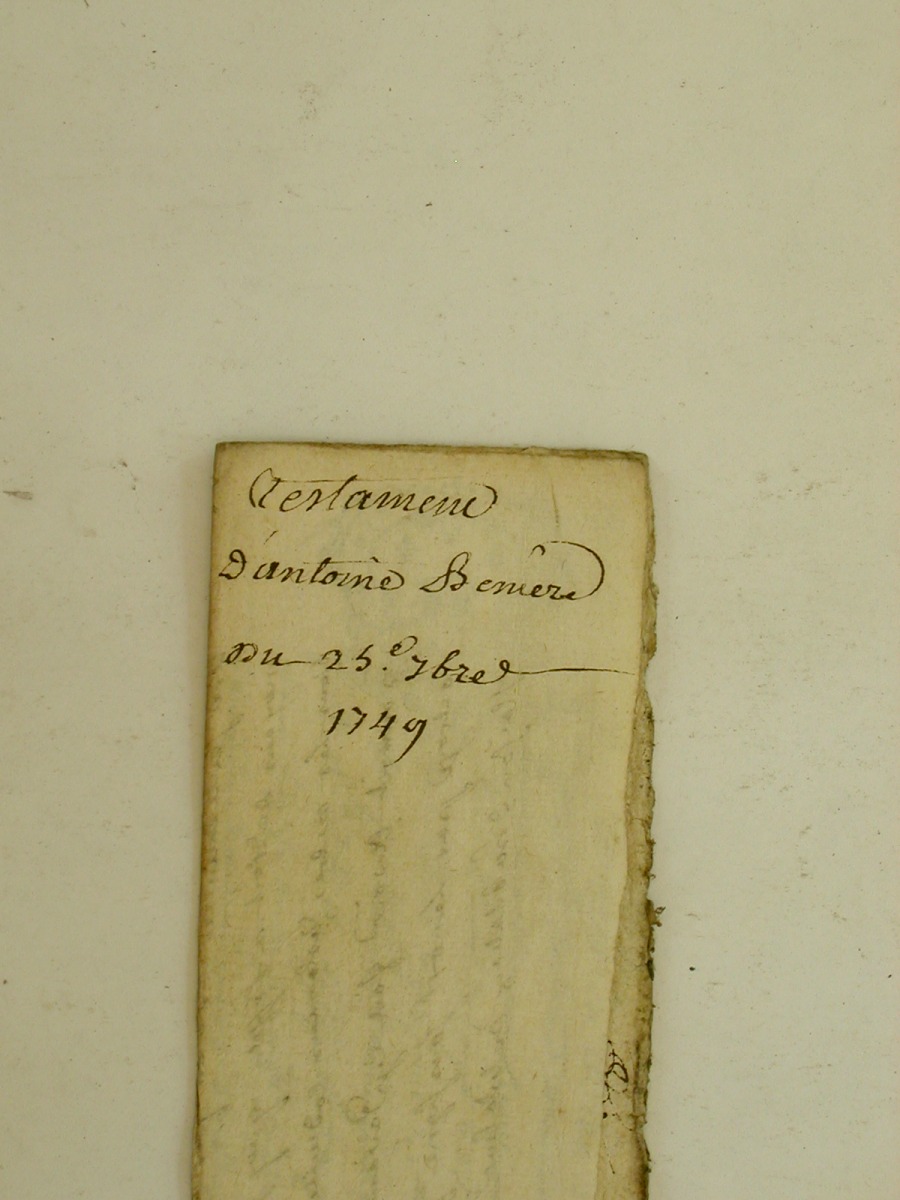 Testament
D'antoine Beniere
Du 25.e 7bre
1749